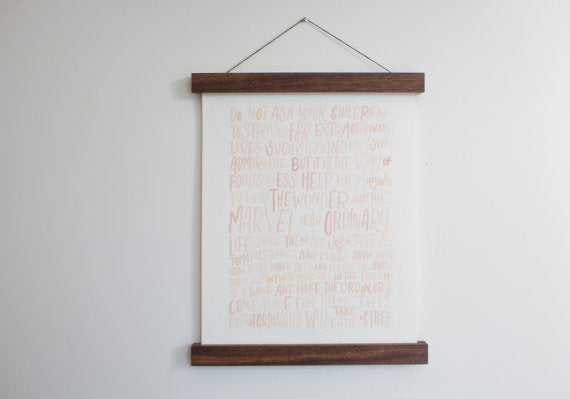 DO NOT ASK YOUR CHILDREN
TO STRIVE FOR EXTRAORDINARY
LIVES. SUCH STRIVING MAY SEEM
ADMIRABLE, BUT IT IS THE WAY OF
FOOLISHNESS. HELP THEM INSTEAD
TO FIND THE WONDER AND THE
MARVEL OF AN ORDINARY
LIFE. SHOW THEM THE JOY OF TASTING
TOMATOES, APPLES AND PEARS. SHOW THEM
HOW TO CRY WHEN PETS AND PEOPLE DIE. SHOW
THEM THE INFINITE PLEASURE IN THE TOUCH
OF A HAND. AND MAKE THE ORDINARY
COME ALIVE FOR THEM. THE
EXTRAORDINARY WILL TAKE CARE OF ITSELF.